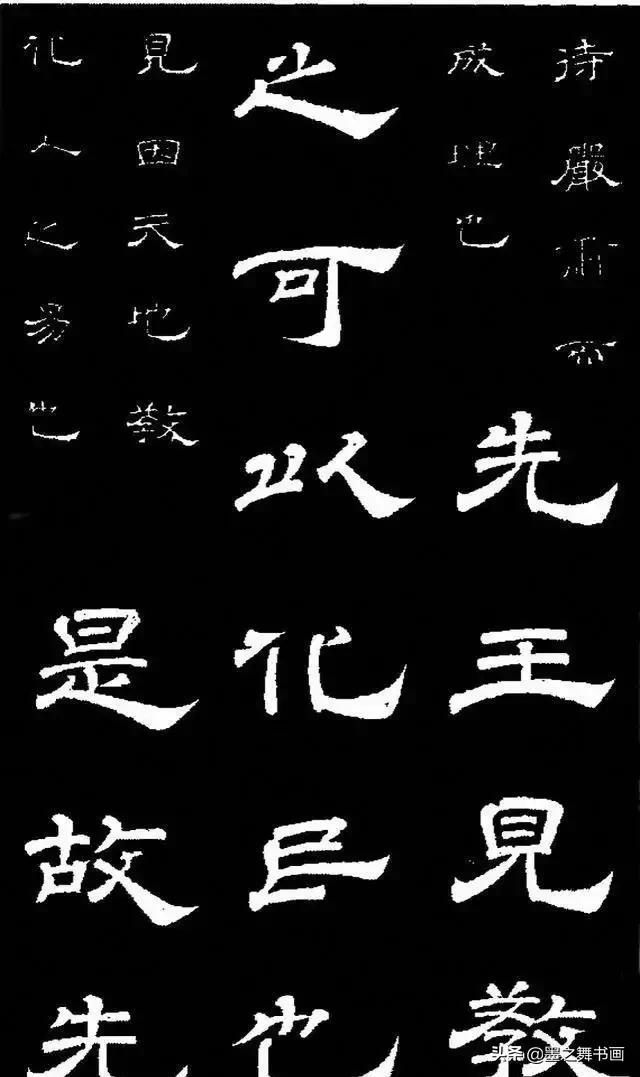 待嚴肅而
成理也
先王見教
之可以化民也
見因天地教
化人之易也
是故先
头条 @墨之舞书画